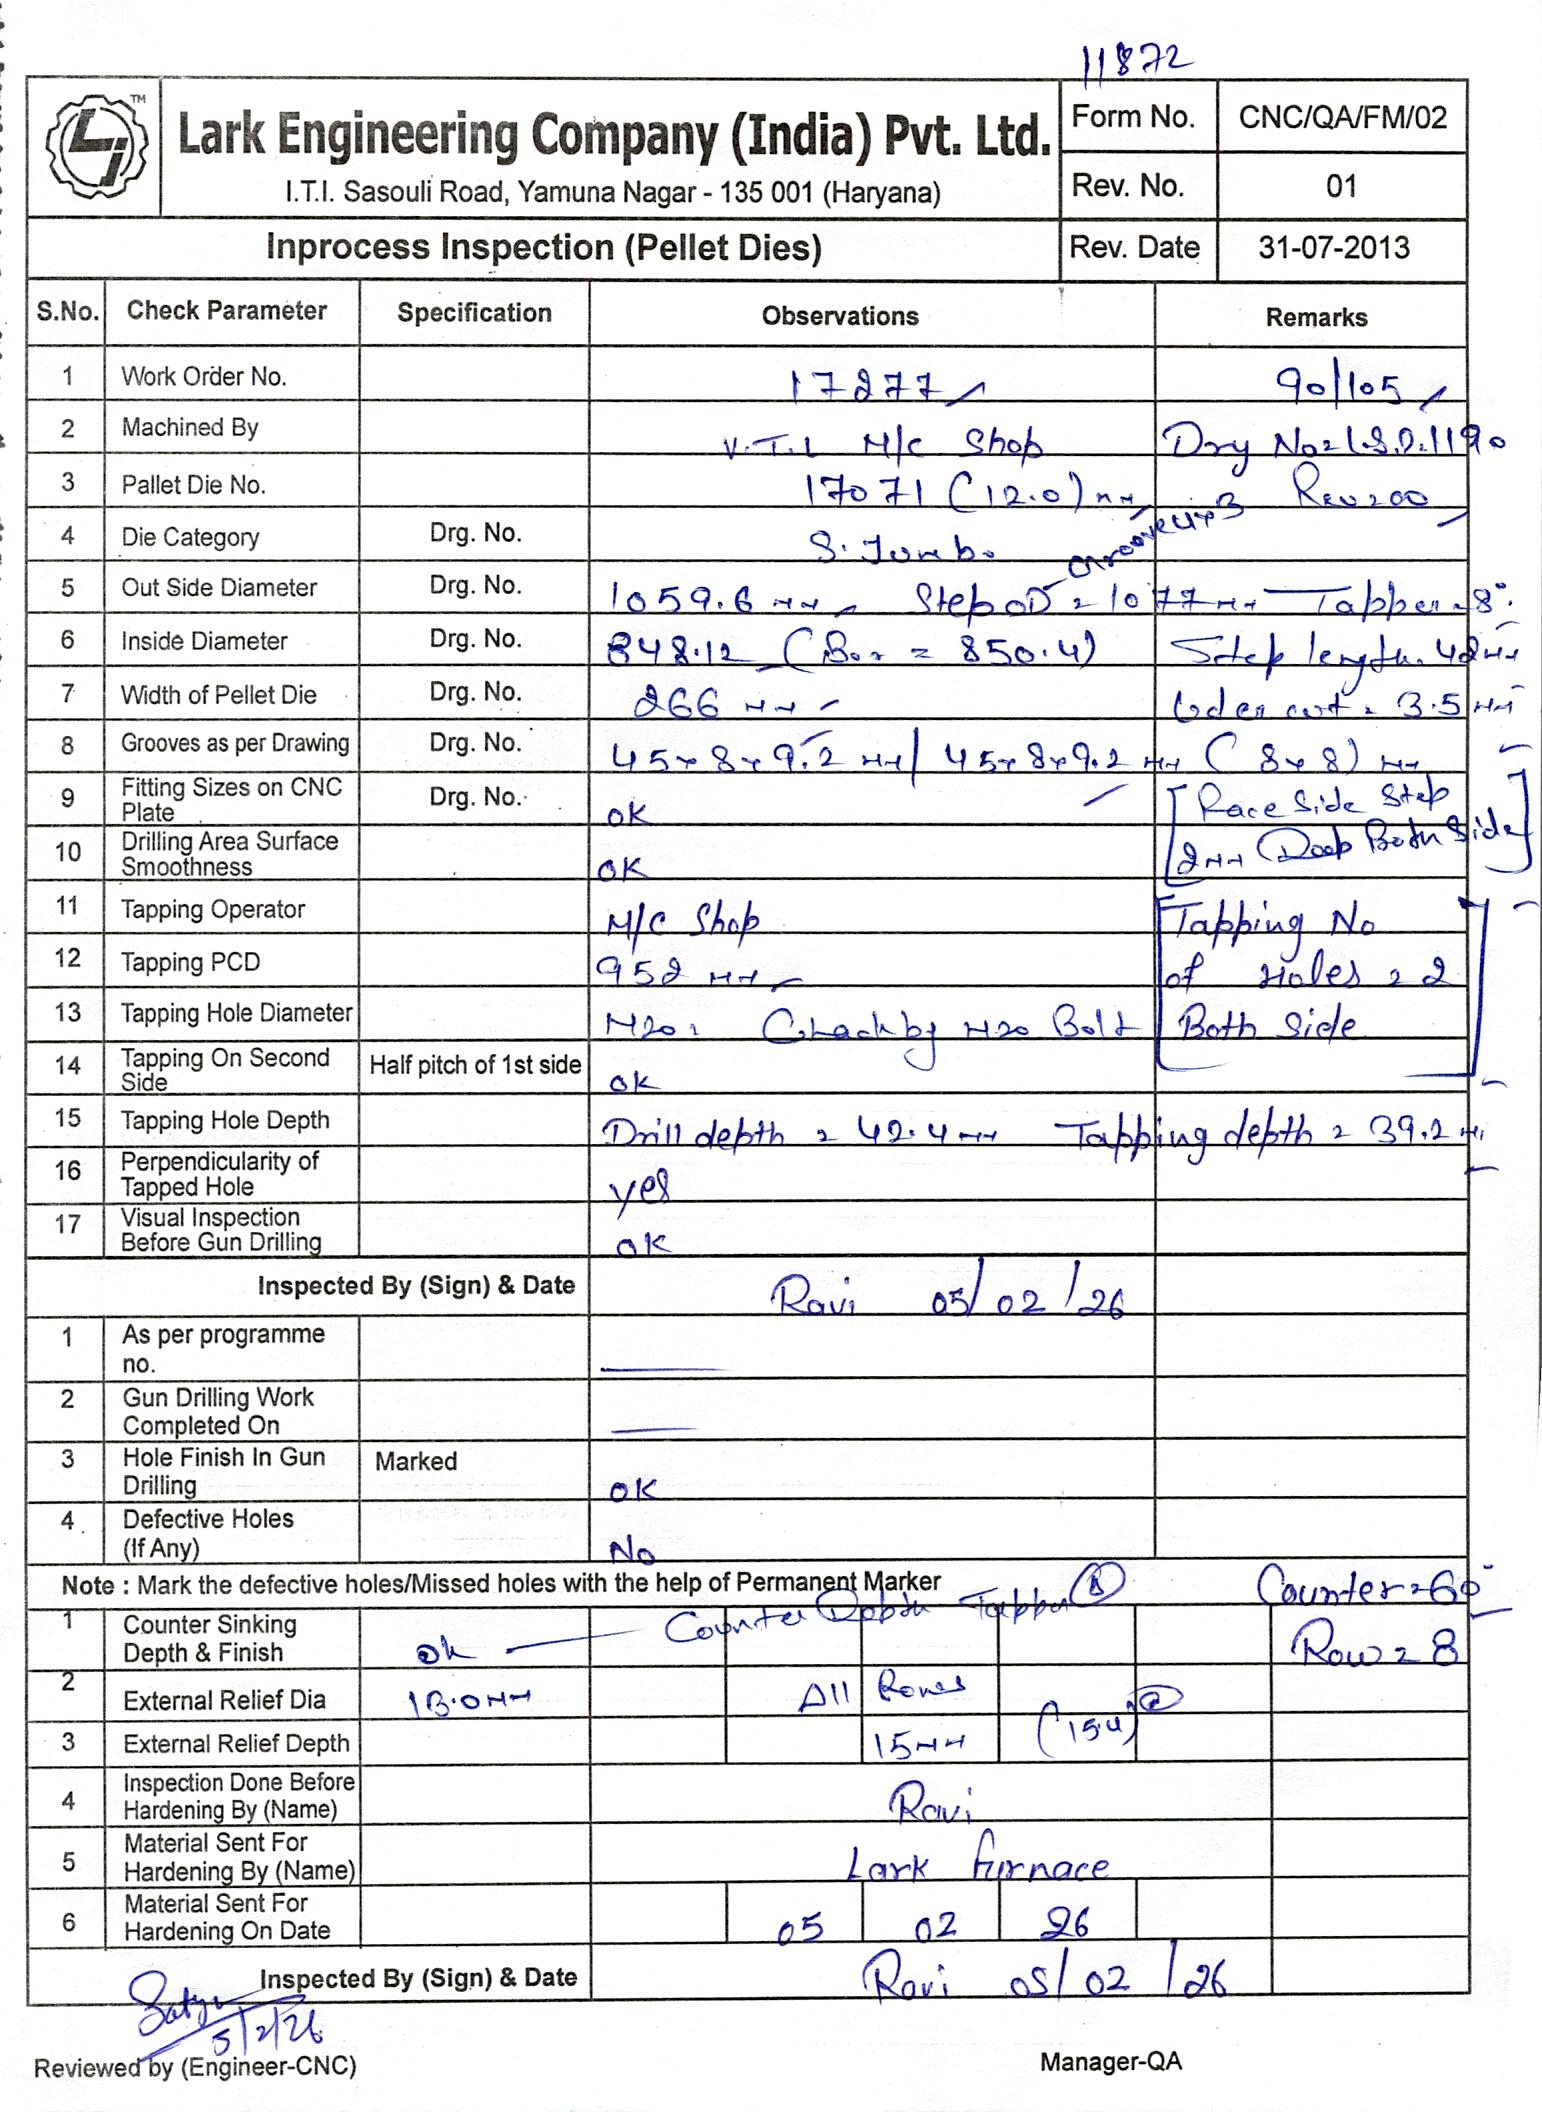 11872
TM
Lark Engineering Company (India) Pvt. Ltd.
I.T.I. Sasouli Road, Yamuna Nagar - 135 001 (Haryana)
Form No. CNC/QA/FM/02
Rev. No. 01
Inprocess Inspection (Pellet Dies) Rev. Date 31-07-2013
S.No. Check Parameter Specification Observations Remarks
1 Work Order No. 17277 90/105
2 Machined By V.T.L M/C Shop Dry No = L.S.D. 1190
3 Pallet Die No. 17071 (12.0) mm Rev = 00
4 Die Category Drg. No. S. Jumbo Groove 4x3
5 Out Side Diameter Drg. No. 1059.6 mm Step OD = 1077 mm Tapper = 8°
6 Inside Diameter Drg. No. 848.12 (Bor = 850.4) Step length = 42 mm
7 Width of Pellet Die Drg. No. 266 mm Uder cut = 3.5 mm
8 Grooves as per Drawing Drg. No. 45x8x9.2 mm / 45x8x9.2 mm (8x8) mm
9 Fitting Sizes on CNC Plate Drg. No. OK [Race Side Step
10 Drilling Area Surface Smoothness OK 2mm Deep Both Side]
11 Tapping Operator M/C Shop [Tapping No
12 Tapping PCD 952 mm of Holes = 2
13 Tapping Hole Diameter M20, Chack by M20 Bolt Both Side]
14 Tapping On Second Side Half pitch of 1st side ok
15 Tapping Hole Depth Drill depth = 42.4 mm Tapping depth = 39.2 mm
16 Perpendicularity of Tapped Hole yes
17 Visual Inspection Before Gun Drilling OK
Inspected By (Sign) & Date Ravi 05/02/26
1 As per programme no. —
2 Gun Drilling Work Completed On —
3 Hole Finish In Gun Drilling Marked OK
4. Defective Holes (If Any) No
Note : Mark the defective holes/Missed holes with the help of Permanent Marker Counter = 60°
1 Counter Sinking Depth & Finish ok — Counter Depth Tapper Row = 8
2 External Relief Dia 13.0 mm All Rows
3 External Relief Depth 15 mm (15.4)
4 Inspection Done Before Hardening By (Name) Ravi
5 Material Sent For Hardening By (Name) Lark furnace
6 Material Sent For Hardening On Date 05 02 26
Inspected By (Sign) & Date Ravi 05/02/26
5/2/26
Reviewed by (Engineer-CNC) Manager-QA